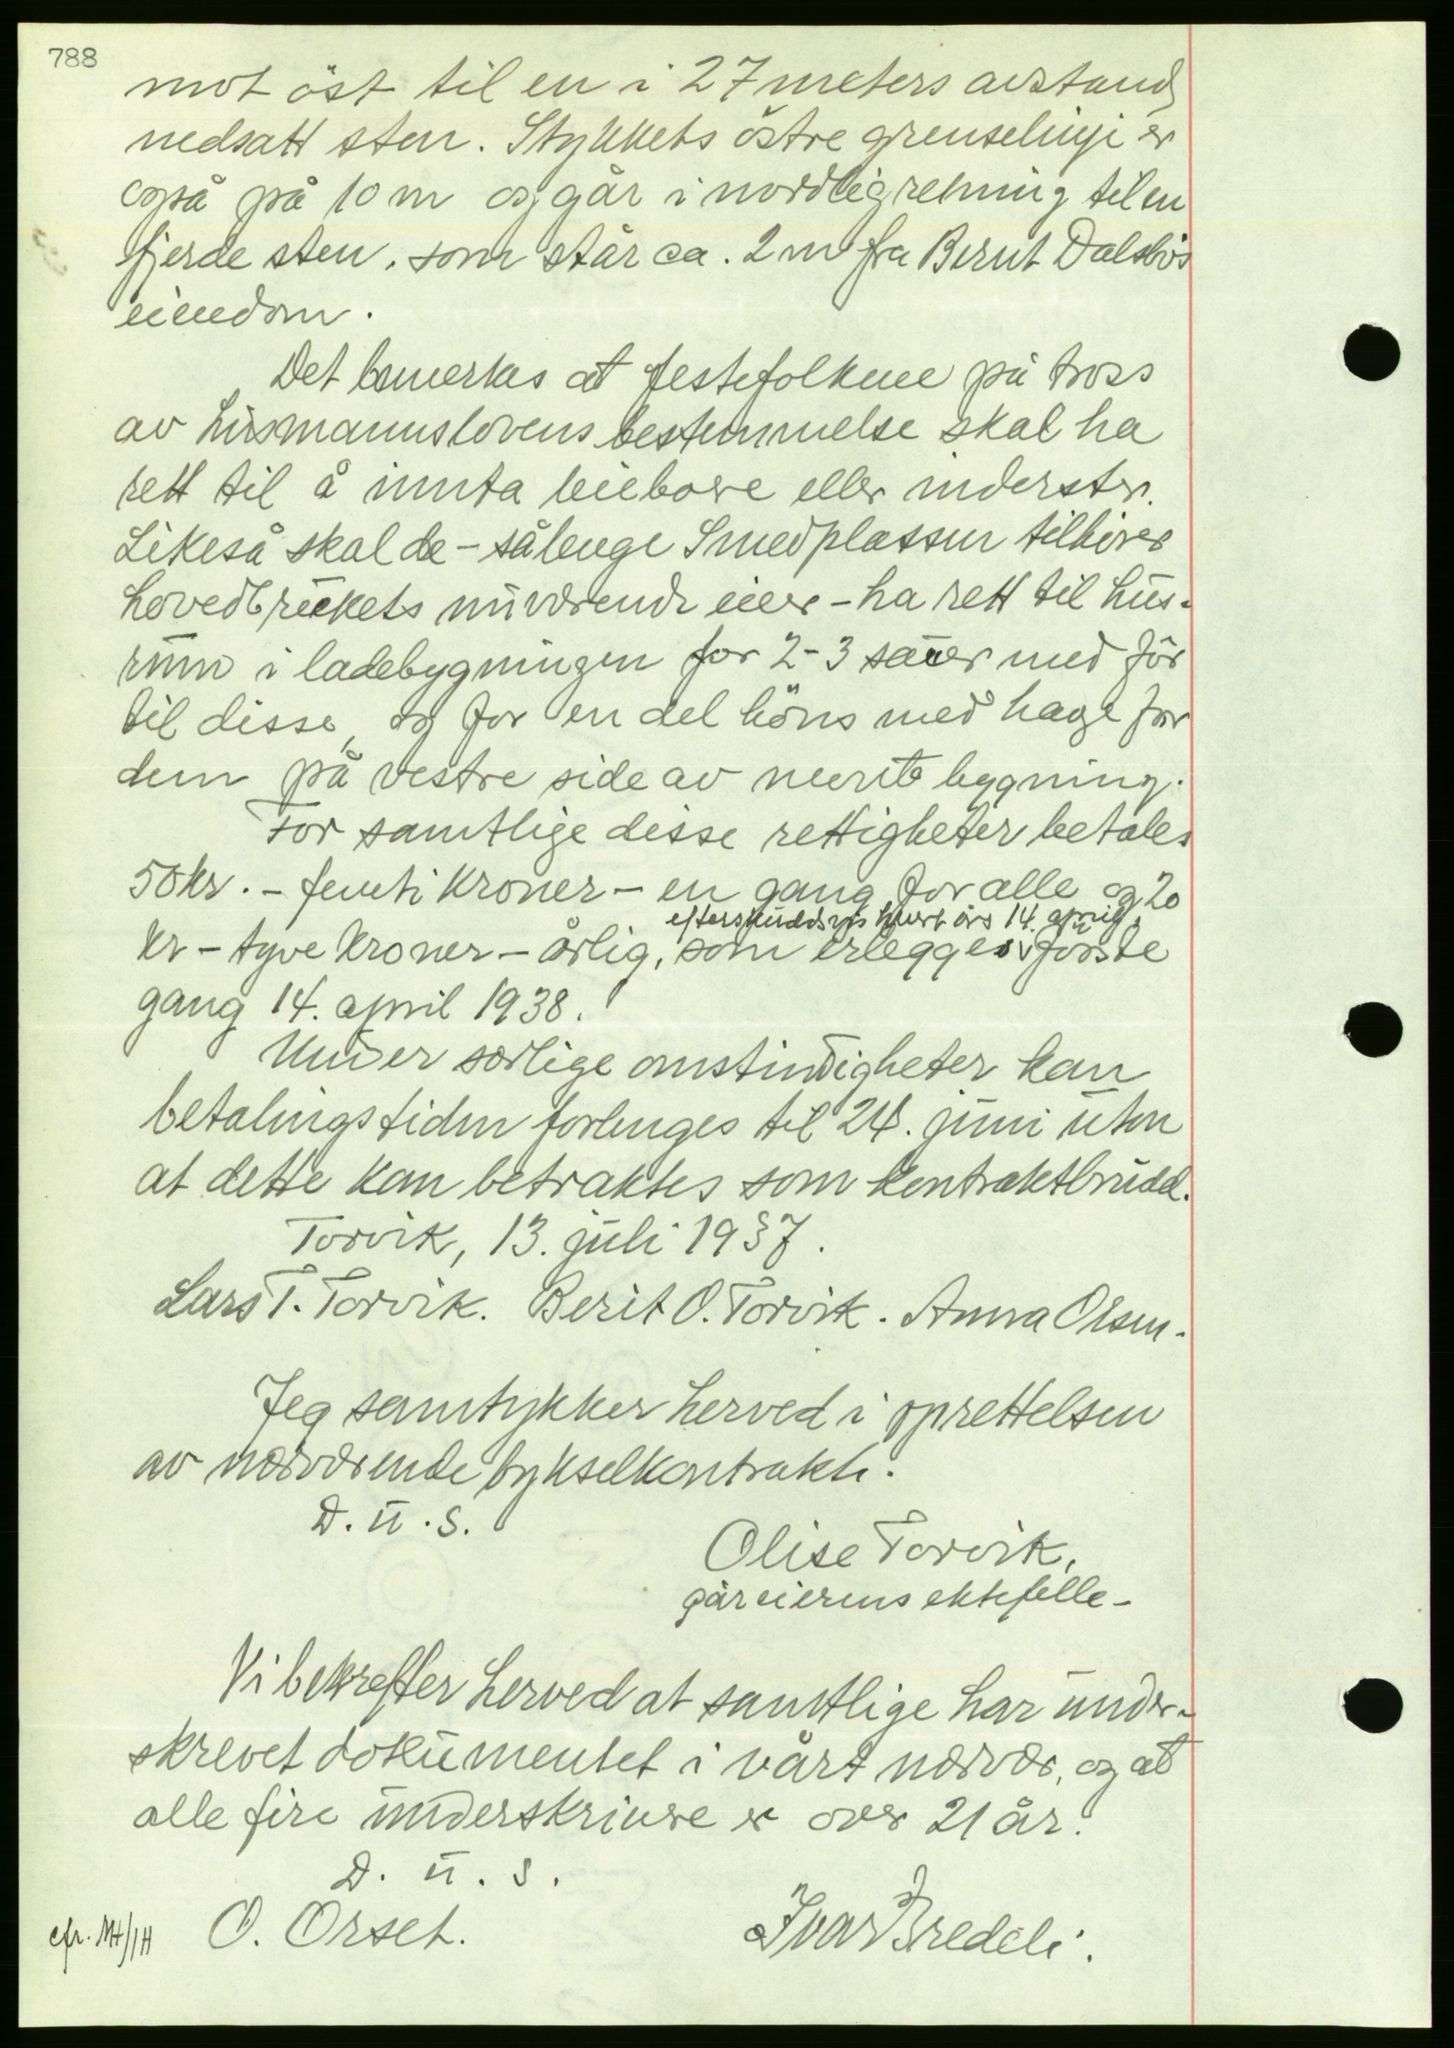 788
mot öst til en i 27 meters avstand
nedsatt sten. Stykkets östre grenselinje er
også på 10 m og går i nordlig retning til en
fjerde sten, som står ca. 2 m fra Bernt Dalsbös
eiendom.
Det bemerkes at festefolkene på tross
av husmannslovens bestemmelse skal ha
rett til å innta leieboere eller inderster.
Likeså skal de - sålenge Smedplassen tilhører
hovedbrukets nuværende eier - ha rett til hus-
rum i ladebygningen for 2-3 sauer med fór
til disse, og for en del höns med hage for
dem på vestre side av nevnte bygning.
For samtlige disse rettigheter betales
50 kr. - femti kroner - en gang for alle og 20
efterskuddsvis hvert års 14. april,
kr - tyve kroner - årlig, som erlegges første
gang 14. april 1938.
Under særlige omstindigheter kan
betalingstiden forlenges til 24. juni uten
at dette kan betraktes som kontraktbrudd.
Torvik, 13. juli 1937.
Lars T. Torvik. Berit O. Torvik. Anna Olsen.
Jeg samtykker herved i oprettelsen
av nærværende bykselkontrakt.
D. u. s.
Olise Torvik,
gåreierens ektefelle -
Vi bekrefter herved at samtlige har under-
skrevet dokumentet i vårt nærvær, og at
alle fire underskrivere er over 21 år.
D. u. s.
cfr. MH/IH O. Orset. Ivar Bredeli.